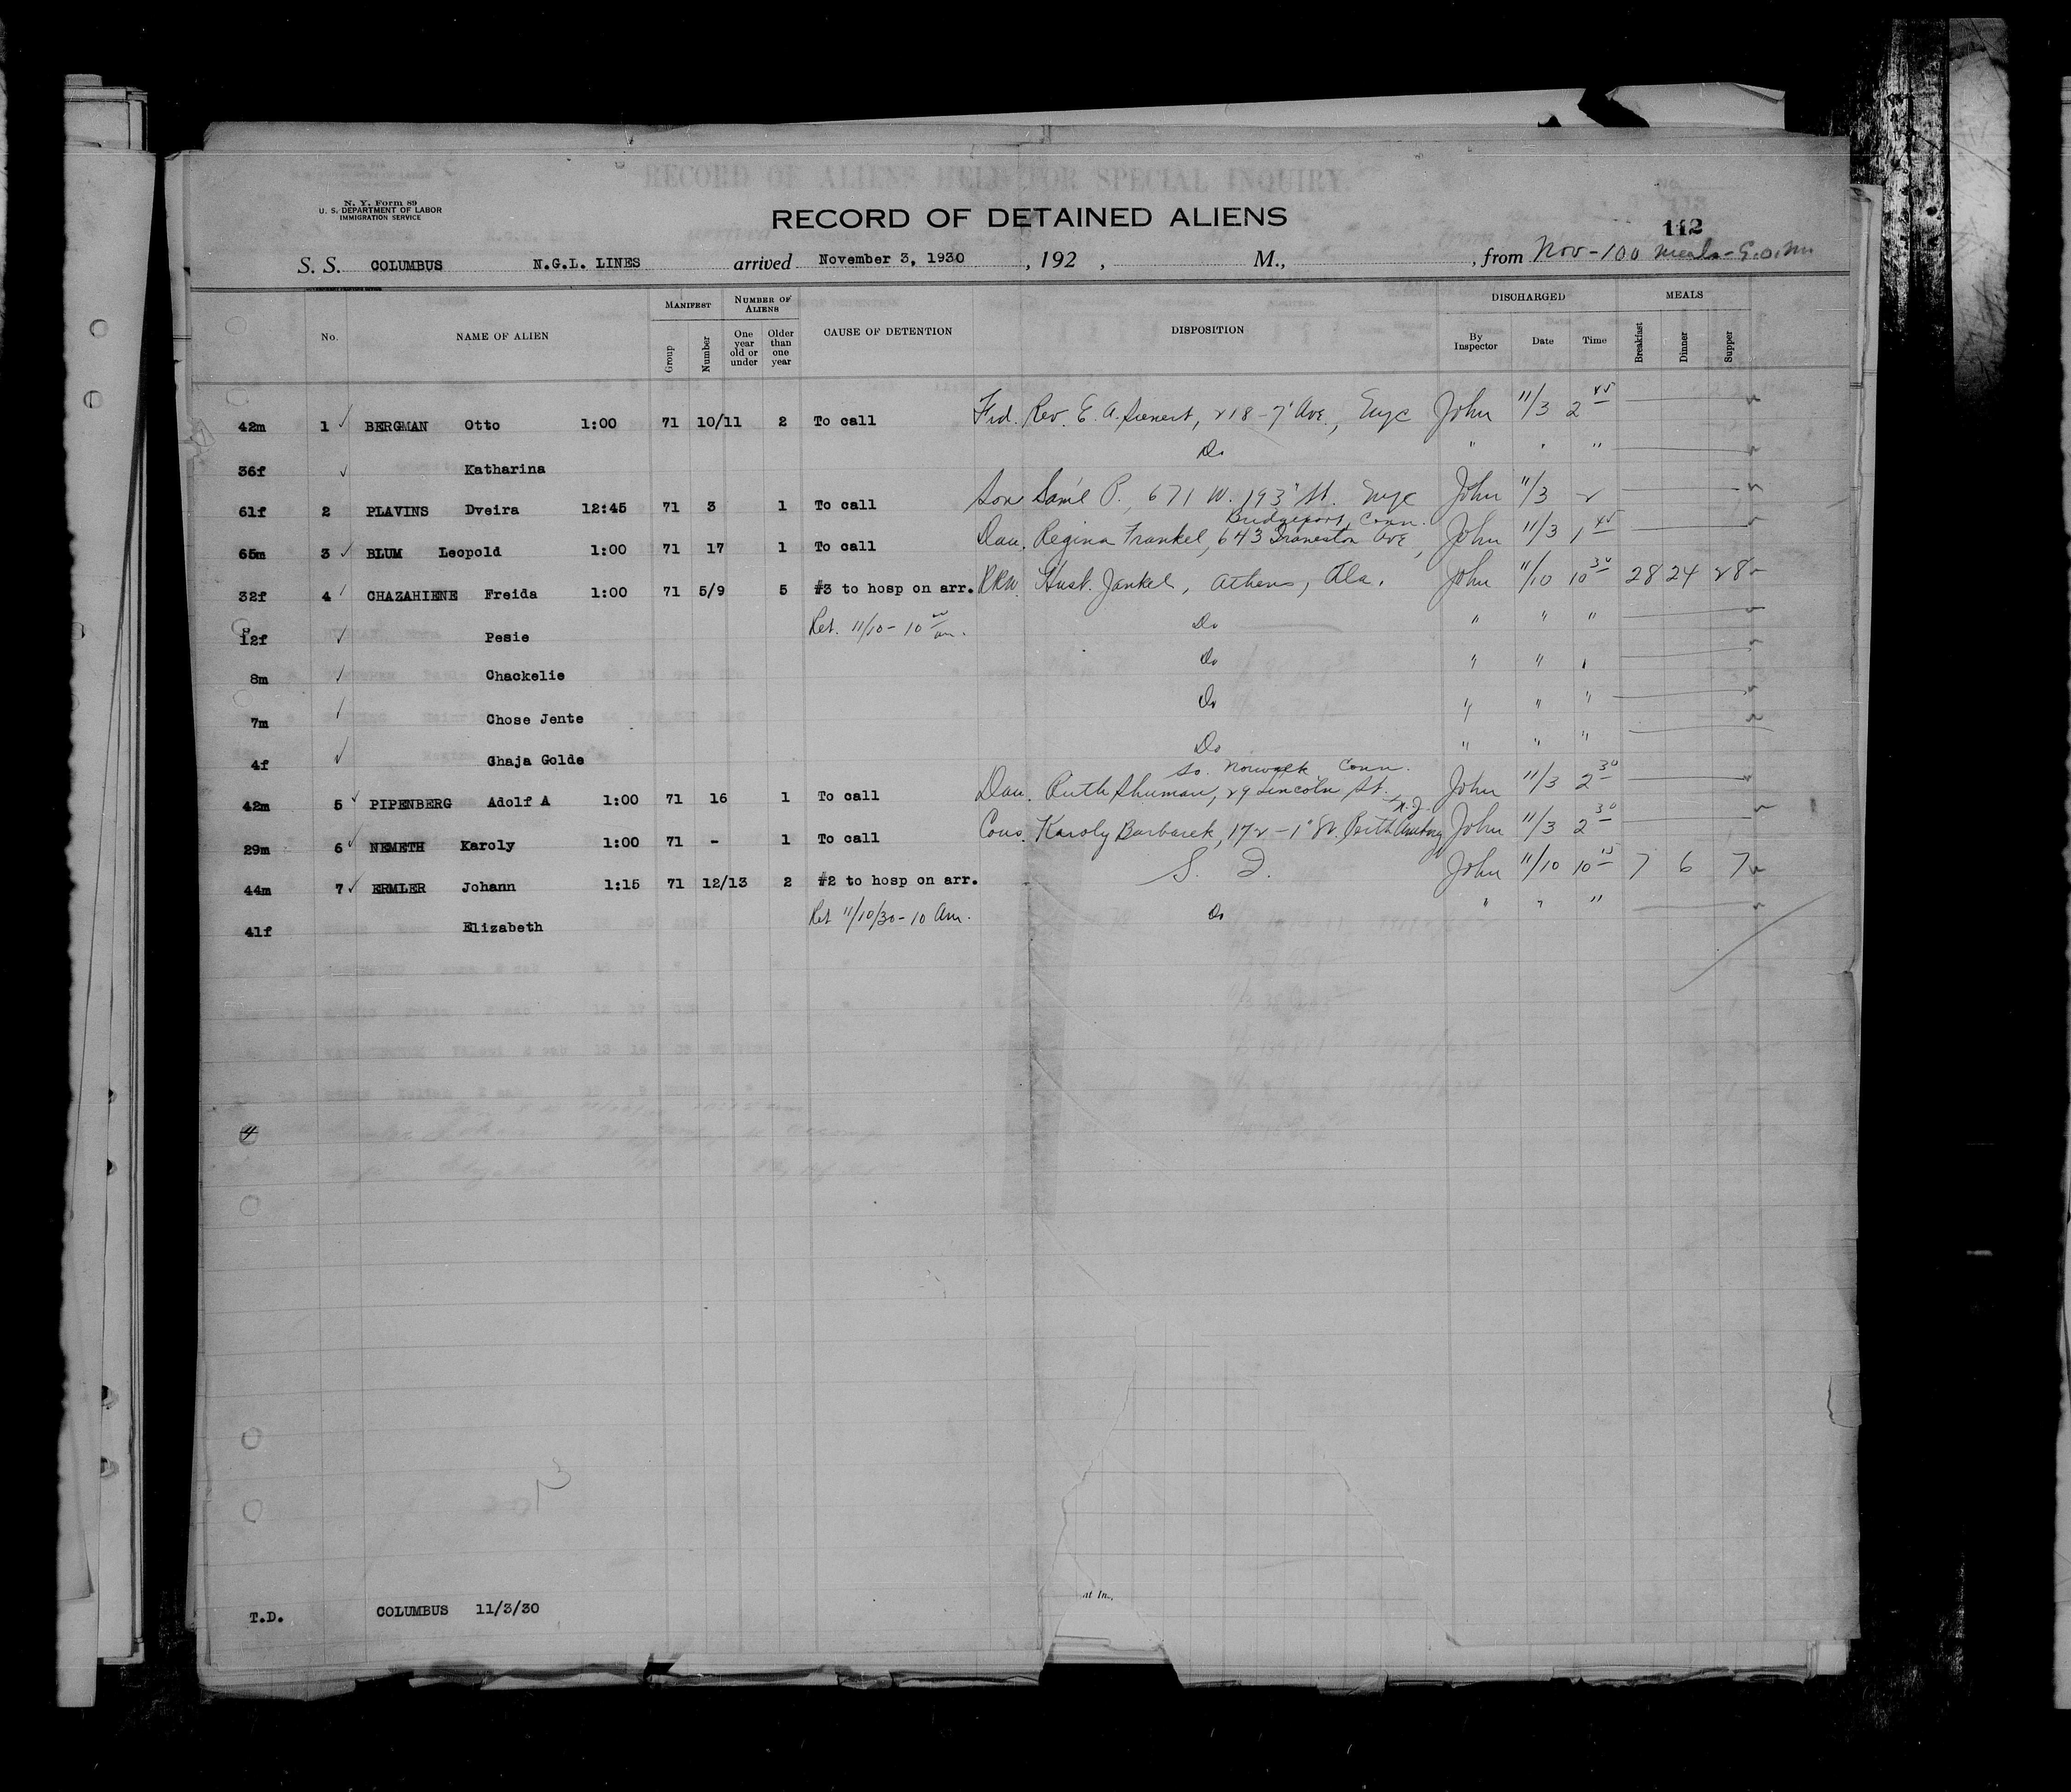 N. Y. Form 89
U. S. DEPARTMENT OF LABOR
IMMIGRATION SERVICE
RECORD OF ALIENS HELD FOR SPECIAL INQUIRY.
RECORD OF DETAINED ALIENS
112
S. S. COLUMBUS N.G.L. LINES arrived November 3, 1930 , 192 , M., , from Nov - 100 meals -
No. NAME OF ALIEN MANIFEST NUMBER OF ALIENS CAUSE OF DETENTION DISPOSITION DISCHARGED MEALS
Group Number One year old or under Older than one year By Inspector Date Time Breakfast Dinner Supper
42m 1 ✓ BERGMAN Otto 1:00 71 10/11 2 To call Frd. Rev. E. A. Sienert, 218 - 7' Ave., Nyc John 11/3 2 45
36f ✓ Katharina Do " " "
61f 2 PLAVINS Dveira 12:45 71 3 1 To call Son Sam'l P., 671 W. 193' St. Nyc John 11/3 2
Bridgeport, Conn.
65m 3 ✓ BLUM Leopold 1:00 71 17 1 To call Dau. Regina Frankel, 643 Iraneston Ave, John 11/3 1 45
32f 4 ✓ CHAZAHIENE Freida 1:00 71 5/9 5 #3 to hosp on arr. RRW. Husb. Jankel, Athens, Ala. John 11/10 10 30 28 24 28
12f ✓ Pesie Ret. 11/10 - 10 am. Do " " "
8m ✓ Chackelie Do " " "
7m ✓ Chose Jente Do " " "
4f ✓ Chaja Golde Do " " "
So. Norwalk Conn.
42m 5 ✓ PIPENBERG Adolf A 1:00 71 16 1 To call Dau. Ruth Shuman, 29 Lincoln St. John 11/3 2 30
N.J.
29m 6 ✓ NEMETH Karoly 1:00 71 - 1 To call Cous. Karoly Barbarek, 172 - 1' St, Perth Amboy John 11/3 2 30
44m 7 ✓ ERMLER Johann 1:15 71 12/13 2 #2 to hosp on arr. S. I. John 11/10 10 15 7 6 7
41f Elizabeth Ret 11/10/30 - 10 Am. Do " " "
4
at In.,
T.D. COLUMBUS 11/3/30